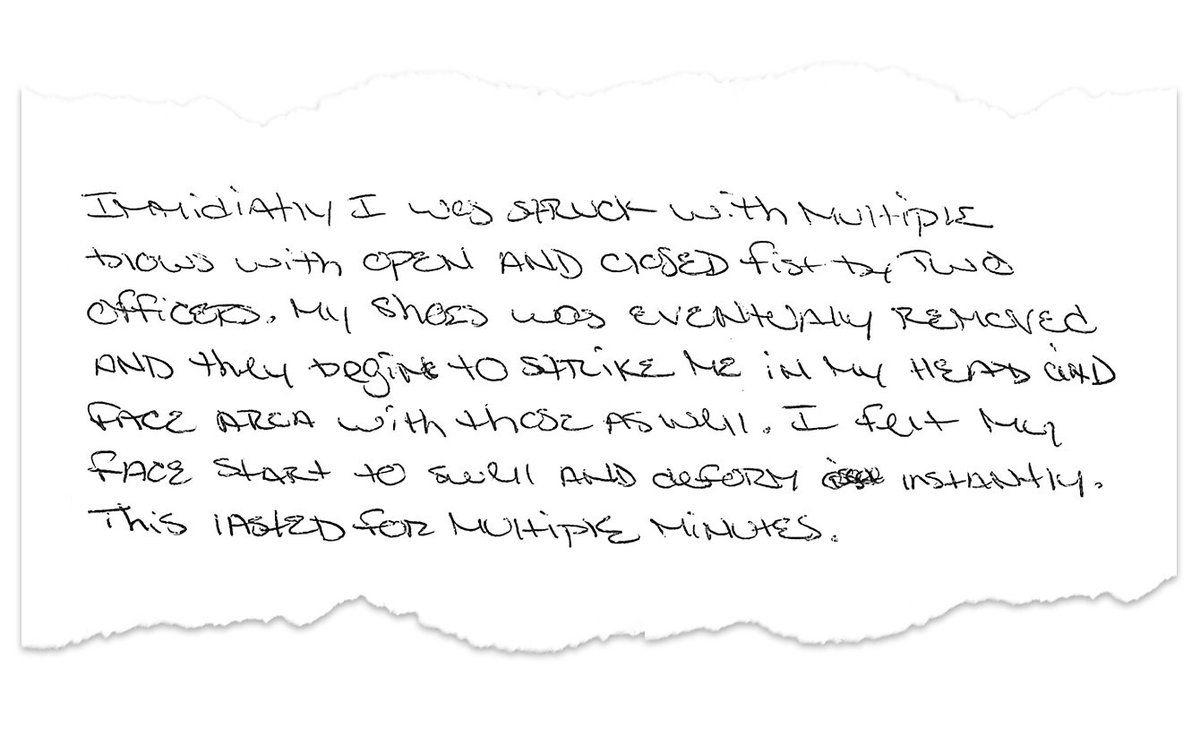 Immidiatly I was struck with multiple
blows with open and closed fist by two
officers. My shoes was eventually removed
and they begin to strike me in my head and
face area with those as well. I felt my
face start to swell and deform instantly.
This lasted for multiple minutes.